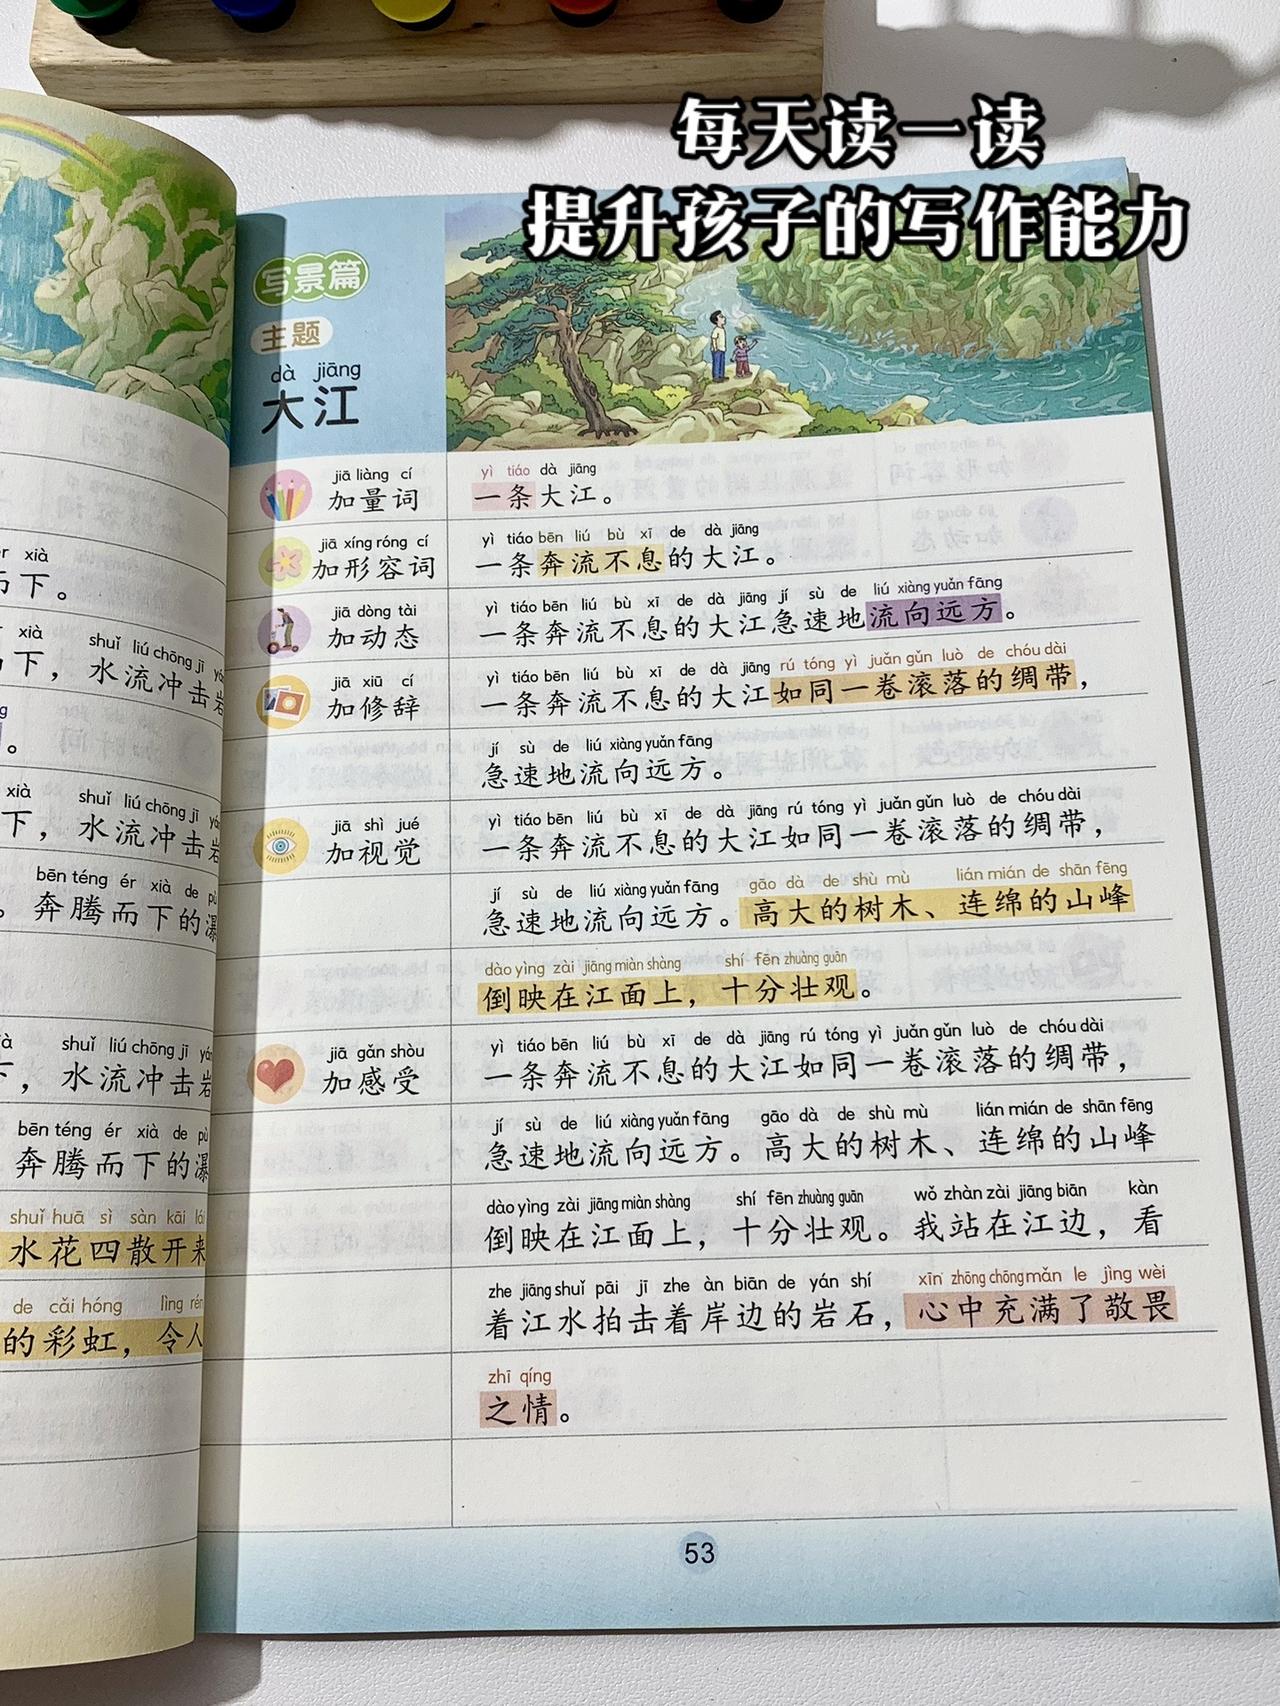 每天读一读
提升孩子的写作能力
写景篇
主题
dà jiāng
大江
jiā liàng cí
加量词
yì tiáo dà jiāng
一条大江。
jiā xíng róng cí
加形容词
yì tiáo bēn liú bù xī de dà jiāng
一条奔流不息的大江。
jiā dòng tài
加动态
yì tiáo bēn liú bù xī de dà jiāng jí sù de liú xiàng yuǎn fāng
一条奔流不息的大江急速地流向远方。
jiā xiū cí
加修辞
yì tiáo bēn liú bù xī de dà jiāng rú tóng yì juǎn gǔn luò de chóu dài
一条奔流不息的大江如同一卷滚落的绸带，
jí sù de liú xiàng yuǎn fāng
急速地流向远方。
jiā shì jué
加视觉
yì tiáo bēn liú bù xī de dà jiāng rú tóng yì juǎn gǔn luò de chóu dài
一条奔流不息的大江如同一卷滚落的绸带，
jí sù de liú xiàng yuǎn fāng gāo dà de shù mù lián mián de shān fēng
急速地流向远方。高大的树木、连绵的山峰
dào yìng zài jiāng miàn shàng shí fēn zhuàng guān
倒映在江面上，十分壮观。
jiā gǎn shòu
加感受
yì tiáo bēn liú bù xī de dà jiāng rú tóng yì juǎn gǔn luò de chóu dài
一条奔流不息的大江如同一卷滚落的绸带，
jí sù de liú xiàng yuǎn fāng gāo dà de shù mù lián mián de shān fēng
急速地流向远方。高大的树木、连绵的山峰
dào yìng zài jiāng miàn shàng shí fēn zhuàng guān wǒ zhàn zài jiāng biān kàn
倒映在江面上，十分壮观。我站在江边，看
zhe jiāng shuǐ pāi jī zhe àn biān de yán shí xīn zhōng chōng mǎn le jìng wèi
着江水拍击着岸边的岩石，心中充满了敬畏
zhī qíng
之情。
53
xià
而下。
xià shuǐ liú chōng jī
下，水流冲击
。
xià shuǐ liú chōng jī
下，水流冲击
bēn téng ér xià de
。奔腾而下的
shuǐ liú chōng jī
下，水流冲击
bēn téng ér xià de
奔腾而下的
shuǐ huā sì sàn kāi
水花四散开
de cǎi hóng lìng
的彩虹，令人